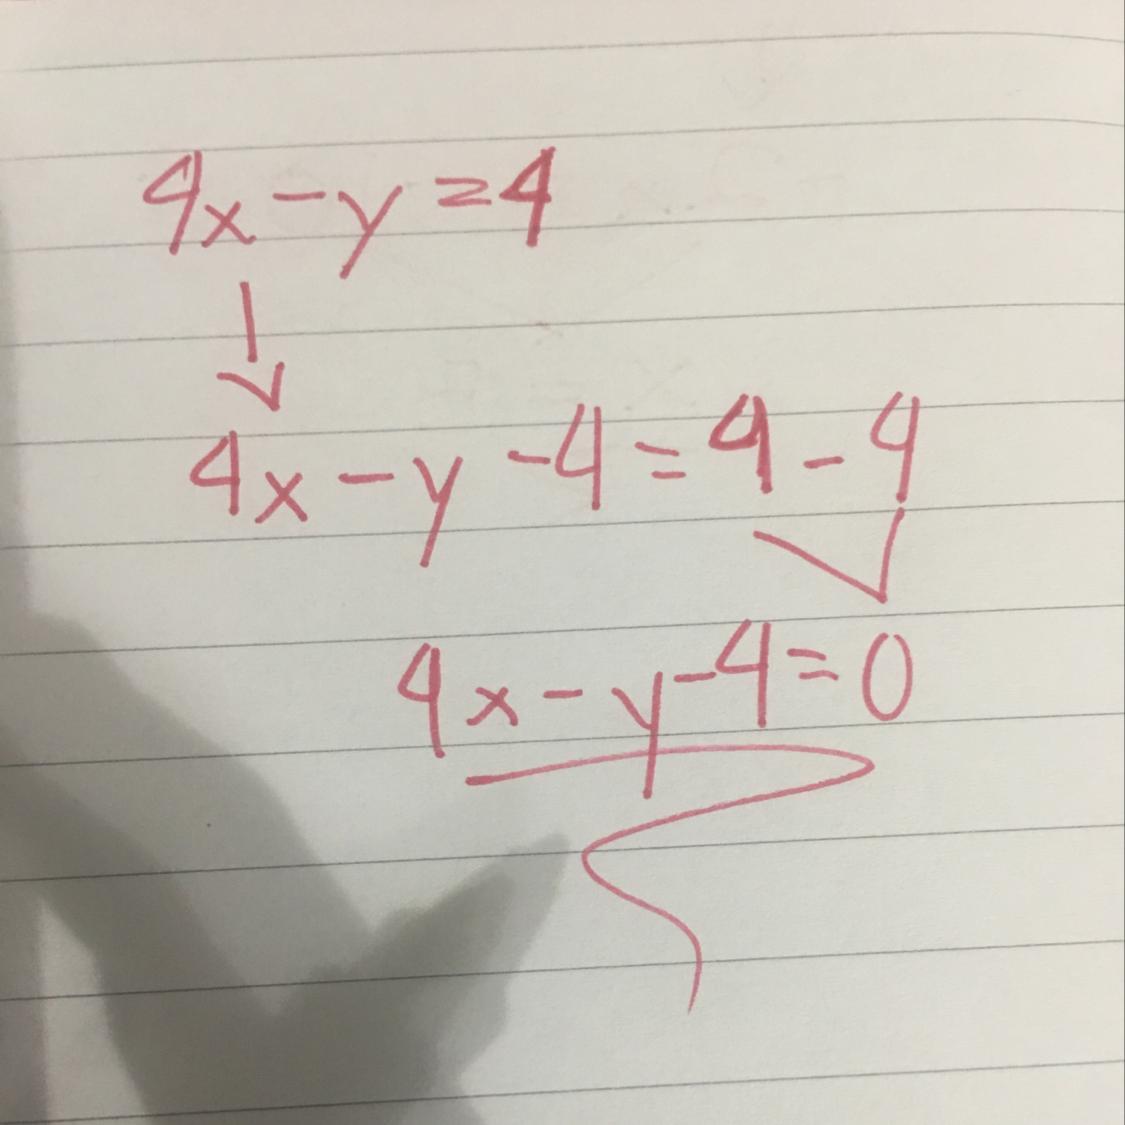 4x - y = 4
4x - y - 4 = 4 - 4
4x - y - 4 = 0